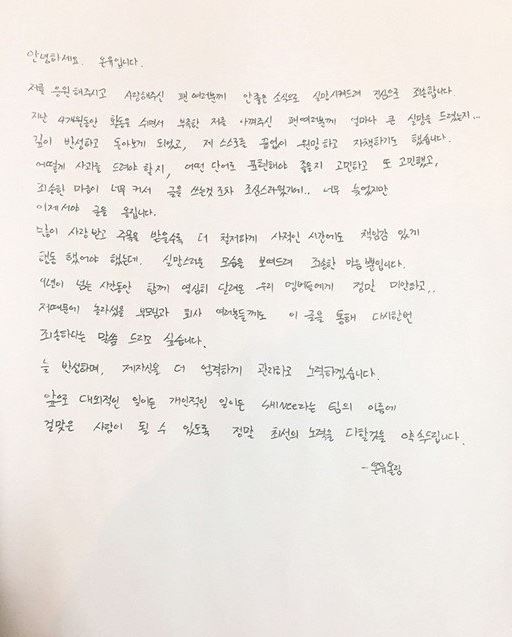 안녕하세요. 온유입니다.
저를 응원해주시고 사랑해주신 팬 여러분께 안좋은 소식으로 실망시켜드려 진심으로 죄송합니다
지난 4개월동안 활동을 쉬면서 부족한 저를 아껴주신 팬여러분께 얼마나 큰 실망을 드렸는지...
깊이 반성하고 돌아보게 되었고, 제 스스로를 끊임없이 원망하고 자책하기도 했습니다.
어떻게 사과를 드려야 할지, 어떤 단어로 표현해야 좋을지 고민하고 또 고민했고,
죄송한 마음이 너무 커서 글을 쓰는것 조차 조심스러웠기에.. 너무 늦었지만
이제서야 글을 올립니다.
많이 사랑받고 주목을 받을수록 더 철저하게 사적인 시간에도 책임감 있게
행동 했어야 했는데. 실망스러운 모습을 보여드려 죄송한 마음 뿐입니다.
9년이 넘는 시간동안 함께 열심히 달려온 우리 멤버들에게 정말 미안하고,.
저때문에 놀라셨을 부모님과 회사 여러분들께도 이 글을 통해 다시한번
죄송하다는 말씀 드리고 싶습니다.
늘 반성하며, 제자신을 더 엄격하게 관리하고 노력하겠습니다.
앞으로 대외적인 일이든 개인적인 일이든 SHINee라는 팀의 이름에
걸맞은 사람이 될 수 있도록 정말 최선의 노력을 다할것을 약속드립니다.
- 온유올림